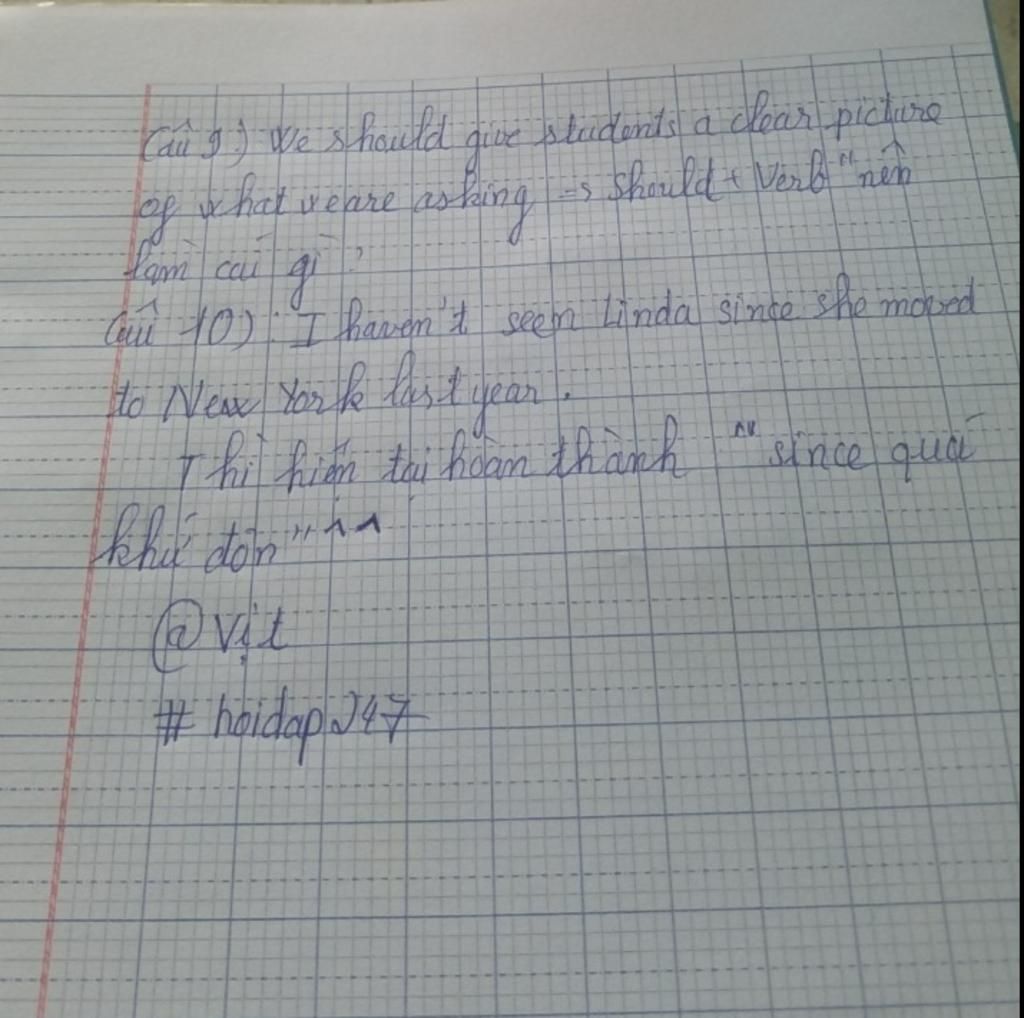 Câu 9) We should give students a clear picture
of what we are asking → should + Verb "nên
làm cái gì"
Câu 10): I haven't seen Linda since she moved
to New York last year.
Thì hiện tại hoàn thành "since quá
khứ đơn" ^^
@Vịt
#hoidap247